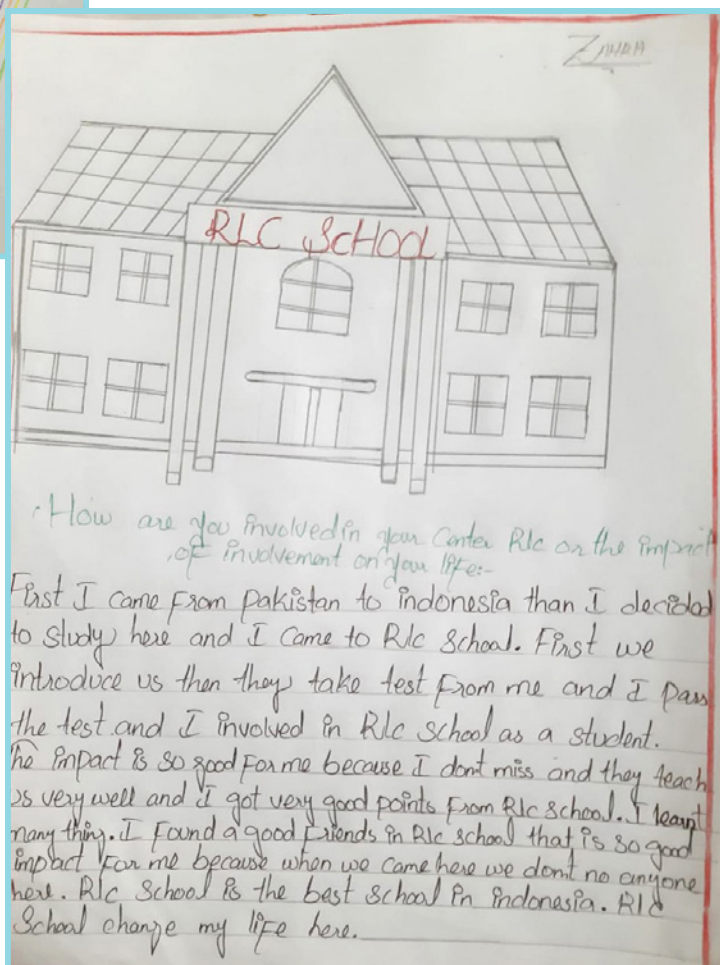 ZAHRA
RLC SCHOOL
How are you involved in your Center Rlc or the impact
of involvement on your life:-
First I came from pakistan to indonesia than I decided
to study here and I came to Rlc school. First we
introduce us then they take test from me and I pass
the test and I involved in Rlc school as a student.
The impact is so good for me because I dont miss and they teach
us very well and I got very good points from Rlc school. I learnt
many thing. I found a good friends in Rlc school that is so good
impact for me because when we came here we don't no anyone
here. Rlc School is the best school in indonesia. Rlc
School change my life here.